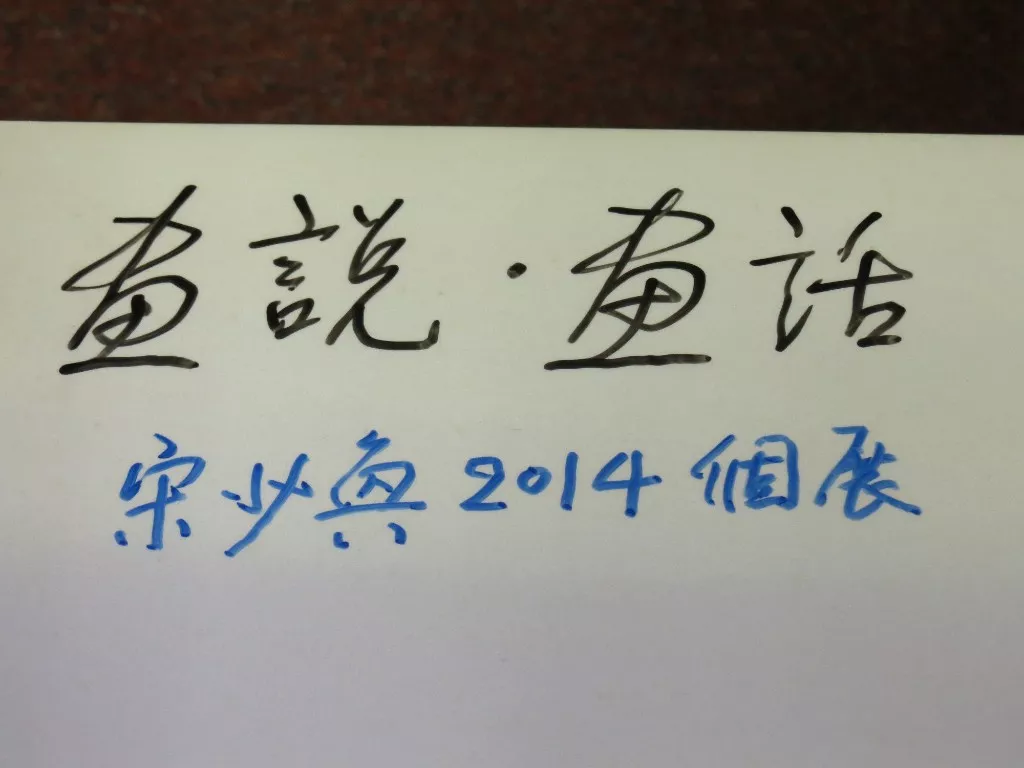 畫說·畫話
宋少奐2014個展